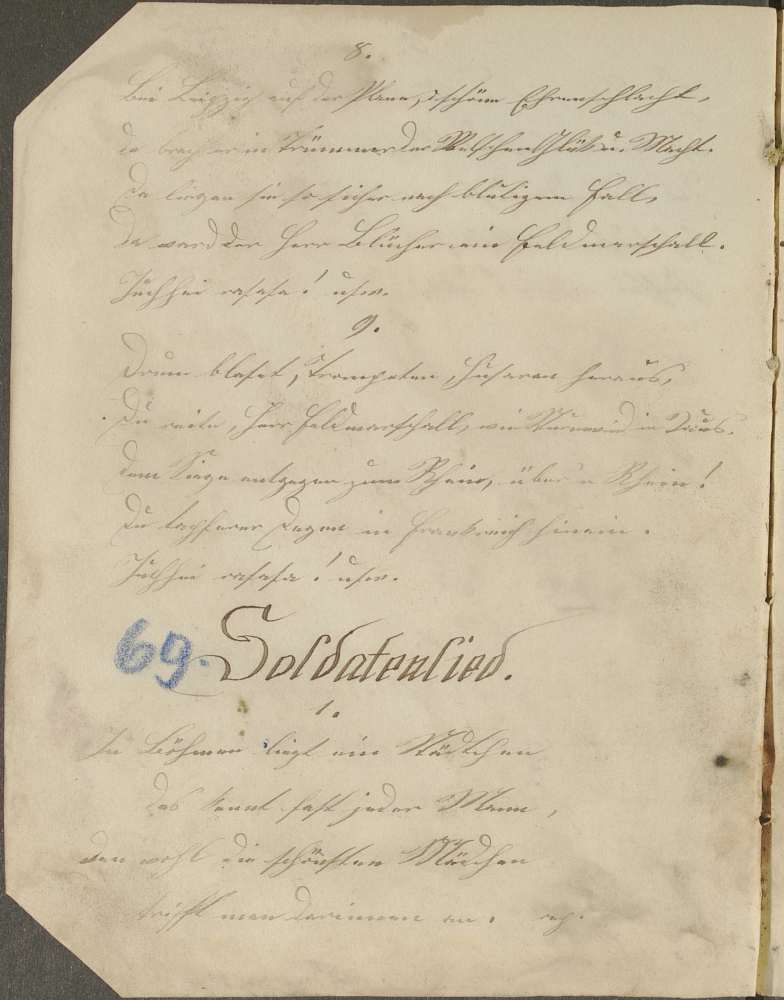 8.
Bei Leipzig auf der Plane, o schöne Ehrenschlacht,
da brach er in Trümmer der Welschen Glück u. Macht.
Da liegen sie so sicher nach blutigem Fall,
Da ward der Herr Blücher ein Feldmarschall.
Juchhei rasasa! usw.
9.
Drum blaset, Trompeten, Husaren heraus,
Du reite, Herr Feldmarschall, wie Sturmwind im Saus.
dem Siege entgegen zum Rhein, über'n Rhein!
Du tapferer Degen in Frankreich hinein.
Juchhei rasasa! usw.
69. Soldatenlied.
1.
In Böhmen liegt ein Städtchen
das kennt fast jeder Mann,
den wohl die schönsten Mädchen
trifft man darinnen an.